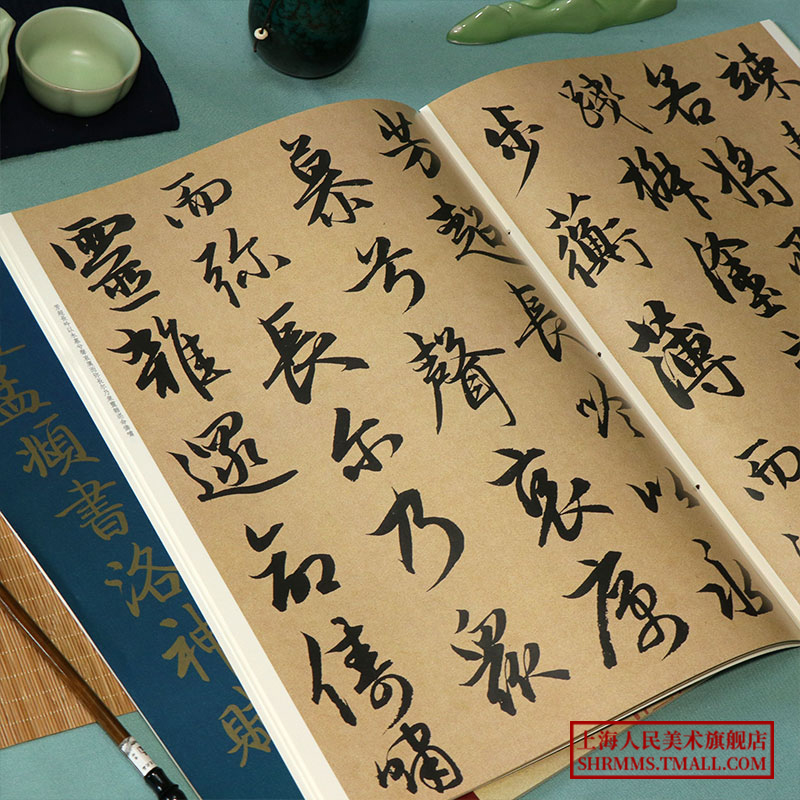 竦
若將
踐椒塗
步蘅薄而
芳超長吟以永
慕兮聲哀厲
而彌長尔乃眾
靈雜遝命儔嘯
孟頫書洛神賦
上海人民美术旗舰店
SHRMMS.TMALL.COM